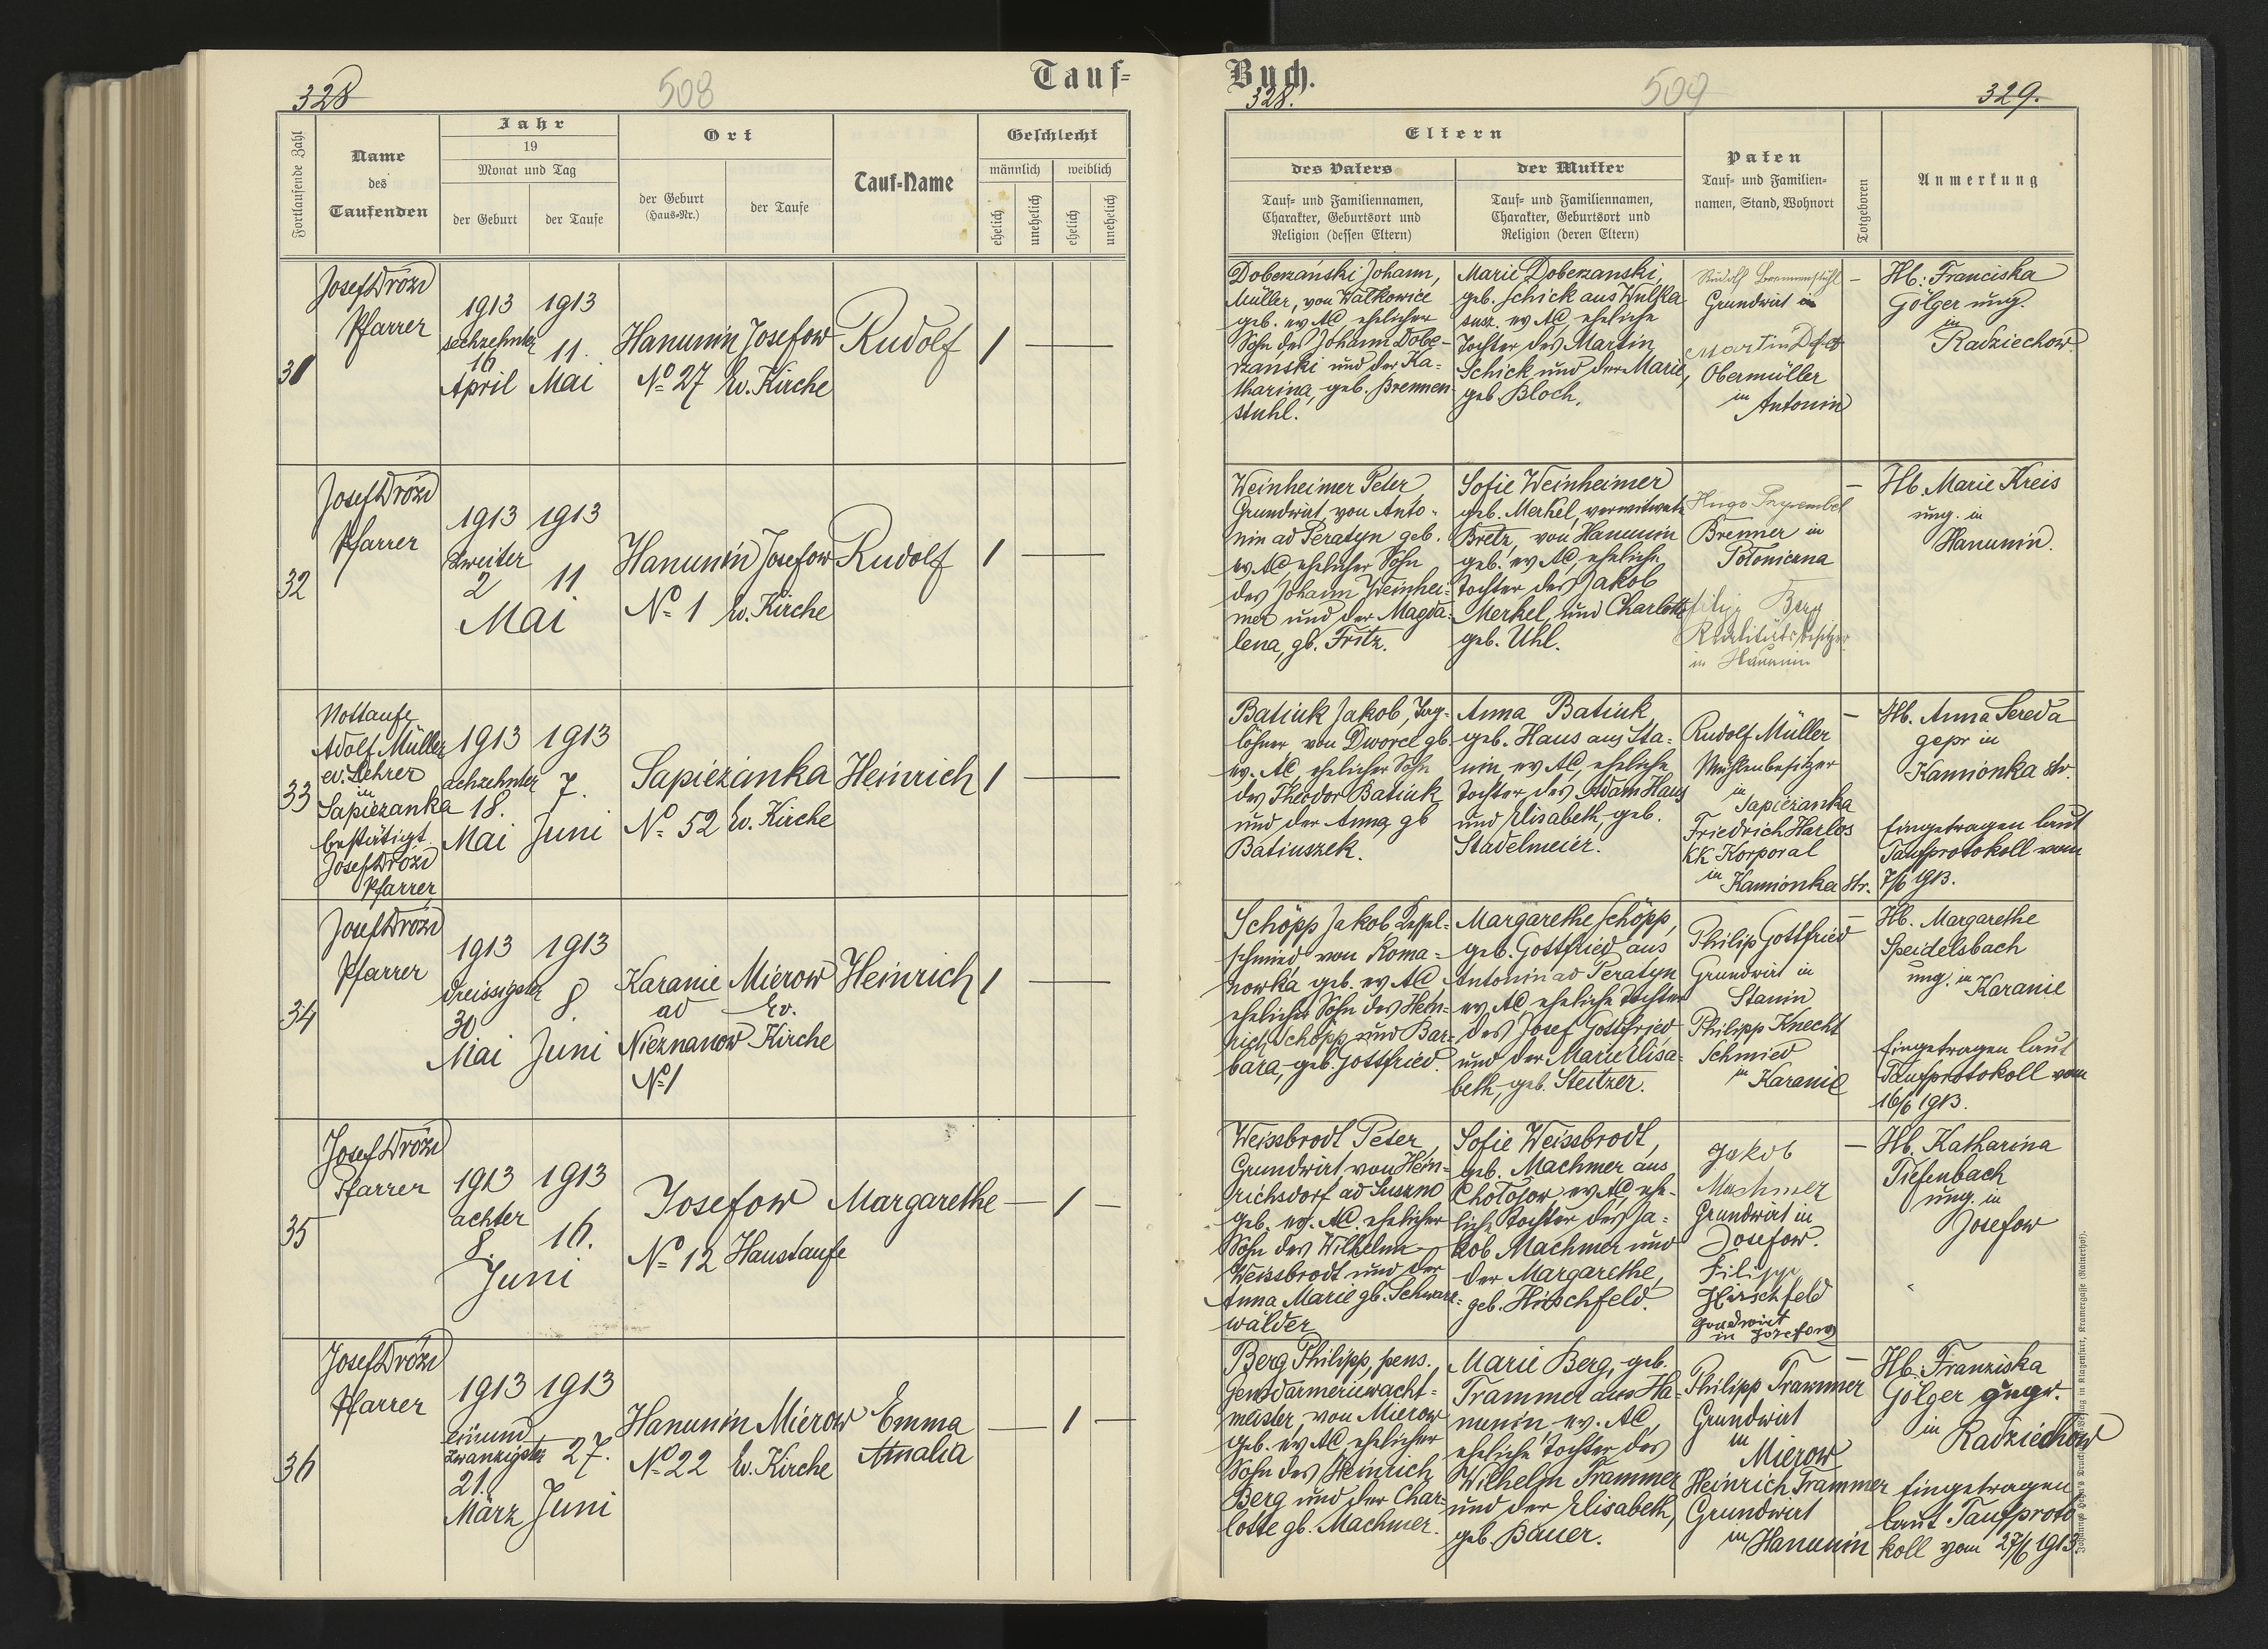 328
508
Tauf=
Fortlaufende Zahl
Name
des
Taufenden
Jahr
19
Monat und Tag
der Geburt
der Taufe
Ort
der Geburt
(Haus-Nr.)
der Taufe
Tauf=Name
Geschlecht
männlich
weiblich
ehelich
unehelich
ehelich
unehelich
31
Josef Drozd
Pfarrer
1913
sechzehnter
16
April
1913
11.
Mai
Hanunin
No 27
Josefow
Ev. Kirche
Rudolf
1
32
Josef Drozd
Pfarrer
1913 1913
Zweiter
2 11
Mai
Hanunin
No 1
Josefow
Ev. Kirche
Rudolf
1
33
Nottaufe
Adolf Müller
ev. Lehrer
in
Sapiezanka
bestätigt
Josef Drozd
Pfarrer
1913
achzehnter
18.
Mai
1913
7.
Juni
Sapiezanka
No 52 Ev. Kirche
Heinrich
1
34
Josef Drozd
Pfarrer
1913
dreissigster
30
Mai
1913
8.
Juni
Karanie
ad
Nieznanow
No 1
Mierow
Ev.
Kirche
Heinrich
1
35
Josef Drozd
Pfarrer
1913 1913
achter
8. 16.
Juni
Josefow
No 12 Haustaufe
Margarethe
1
36
Josef Drozd
Pfarrer
1913
einund
zwanzigster
21.
März
1913
27.
Juni
Hanunin
No 22
Mierow
Ev. Kirche
Emma
Amalia
1
Buch.
328.
509
329.
Eltern
des Vaters
Tauf= und Familiennamen,
Charakter, Geburtsort und
Religion (dessen Eltern)
der Mutter
Tauf= und Familiennamen,
Charakter, Geburtsort und
Religion (deren Eltern)
Paten
Tauf= und Familien=
namen, Stand, Wohnort
Totgeboren
Anmerkung
Doberzanski Johann,
Müller, von Walkowice
geb. ev AC ehelicher
Sohn des Johann Dobe-
rzanski und der Ka-
tharina, geb. Brennen
stuhl.
Marie Doberzanski,
geb. Schick aus Wulka
susz. ev AC, eheliche
Tochter des Martin
Schick und der Marie,
geb. Bloch.
Rudolf Brennenstuhl
Grundwirt in
Martin
Obermüller
in
Antonin
Hb: Franciska
Gölger ung.
in
Radziechow
Weinheimer Peter
Grundwirt von Anto-
nin ad Peratyn geb.
ev AC ehelicher Sohn
des Johann Weinhei-
mer und der Magda-
lena, gb. Fritz.
Sofie Weinheimer
geb. Merkel, verwitwete
Bretz, von Hanunin
geb. ev AC, eheliche
Tochter des Jakob
Merkel, und Charlotte
geb. Uhl.
Hugo
Brenner in
Połoniczna
Filip Berg
Realitätsbesitzer
in Hanunin
Hb. Marie Kreis
ung. in
Hanunin.
Batiuk Jakob, Tag-
löhner von Dworce gb
ev. AC, ehelicher Sohn
des Theodor Batiuk
und der Anna gb
Batiuszek.
Anna Batiuk
geb. Haus aus Sta-
nin ev AC, eheliche
Tochter des Adam Haus
und Elisabeth, geb.
Stadelmeier.
Rudolf Müller
Mühlenbesitzer
in
Sapiezanka
Friedrich Harlos
KK Korporal
in
Kamionka Str.
Hb. Anna Sereda
gepr in
Kamionka Str.
Eingetragen laut
Taufprotokoll vom
7/6 1913.
Schöpp Jakob Kessel-
schmied von Roma-
nowka geb. ev AC,
ehelicher Sohn des Hein-
rich Schöpp und Bar-
bara, geb. Gottfried.
Margarethe Schöpp,
geb. Gottfried aus
Antonin ad Peratyn
ev AC, eheliche Tochter
des Josef Gottfried
und der Marie Elisa-
beth, geb. Steitzer.
Philip Gottfried
Grundwirt in
Stanin
Philipp Knecht
Schmied
in
Karanie
Hb. Margarethe
Speidelsbach
ung. in
Karanie
Eingetragen laut
Taufprotokoll vom
16/6 1913.
Weissbrodt Peter,
Grundwirt von Hein-
richsdorf ad Suszno
geb. ev. AC. ehelicher
Sohn des Wilhelm
Weissbrodt und der
Anna Marie gb. Schwarz-
wälder
Sofie Weissbrodt,
geb. Machmer aus
Chołojow ev AC, ehe-
liche Tochter des Ja-
kob Machmer und
der Margarethe,
geb. Hirschfeld.
Jakob
Machmer
Grundwirt in
Josefow.
Filipp
Hirschfeld
Grundwirt
in Jozefow
Hb. Katharina
Tiefenbach
ung. in
Josefow
Berg Philipp, pens.
Gensdarmeriewacht-
meister, von Mierow
geb. ev AC ehelicher
Sohn des Heinrich
Berg und der Char-
lotte gb. Machmer.
Marie Berg, geb.
Trammer aus Ha-
nunin ev. AC,
eheliche Tochter des
Wilhelm Trammer
und der Elisabeth,
geb. Bauer.
Philipp Trammer
Grundwirt
in
Mierow
Heinrich Trammer
Grundwirt
in Hanunin
Hb. Franziska
Gölger
in
Radziechow
Eingetragen
laut Taufproto
koll vom 27/6 1913.